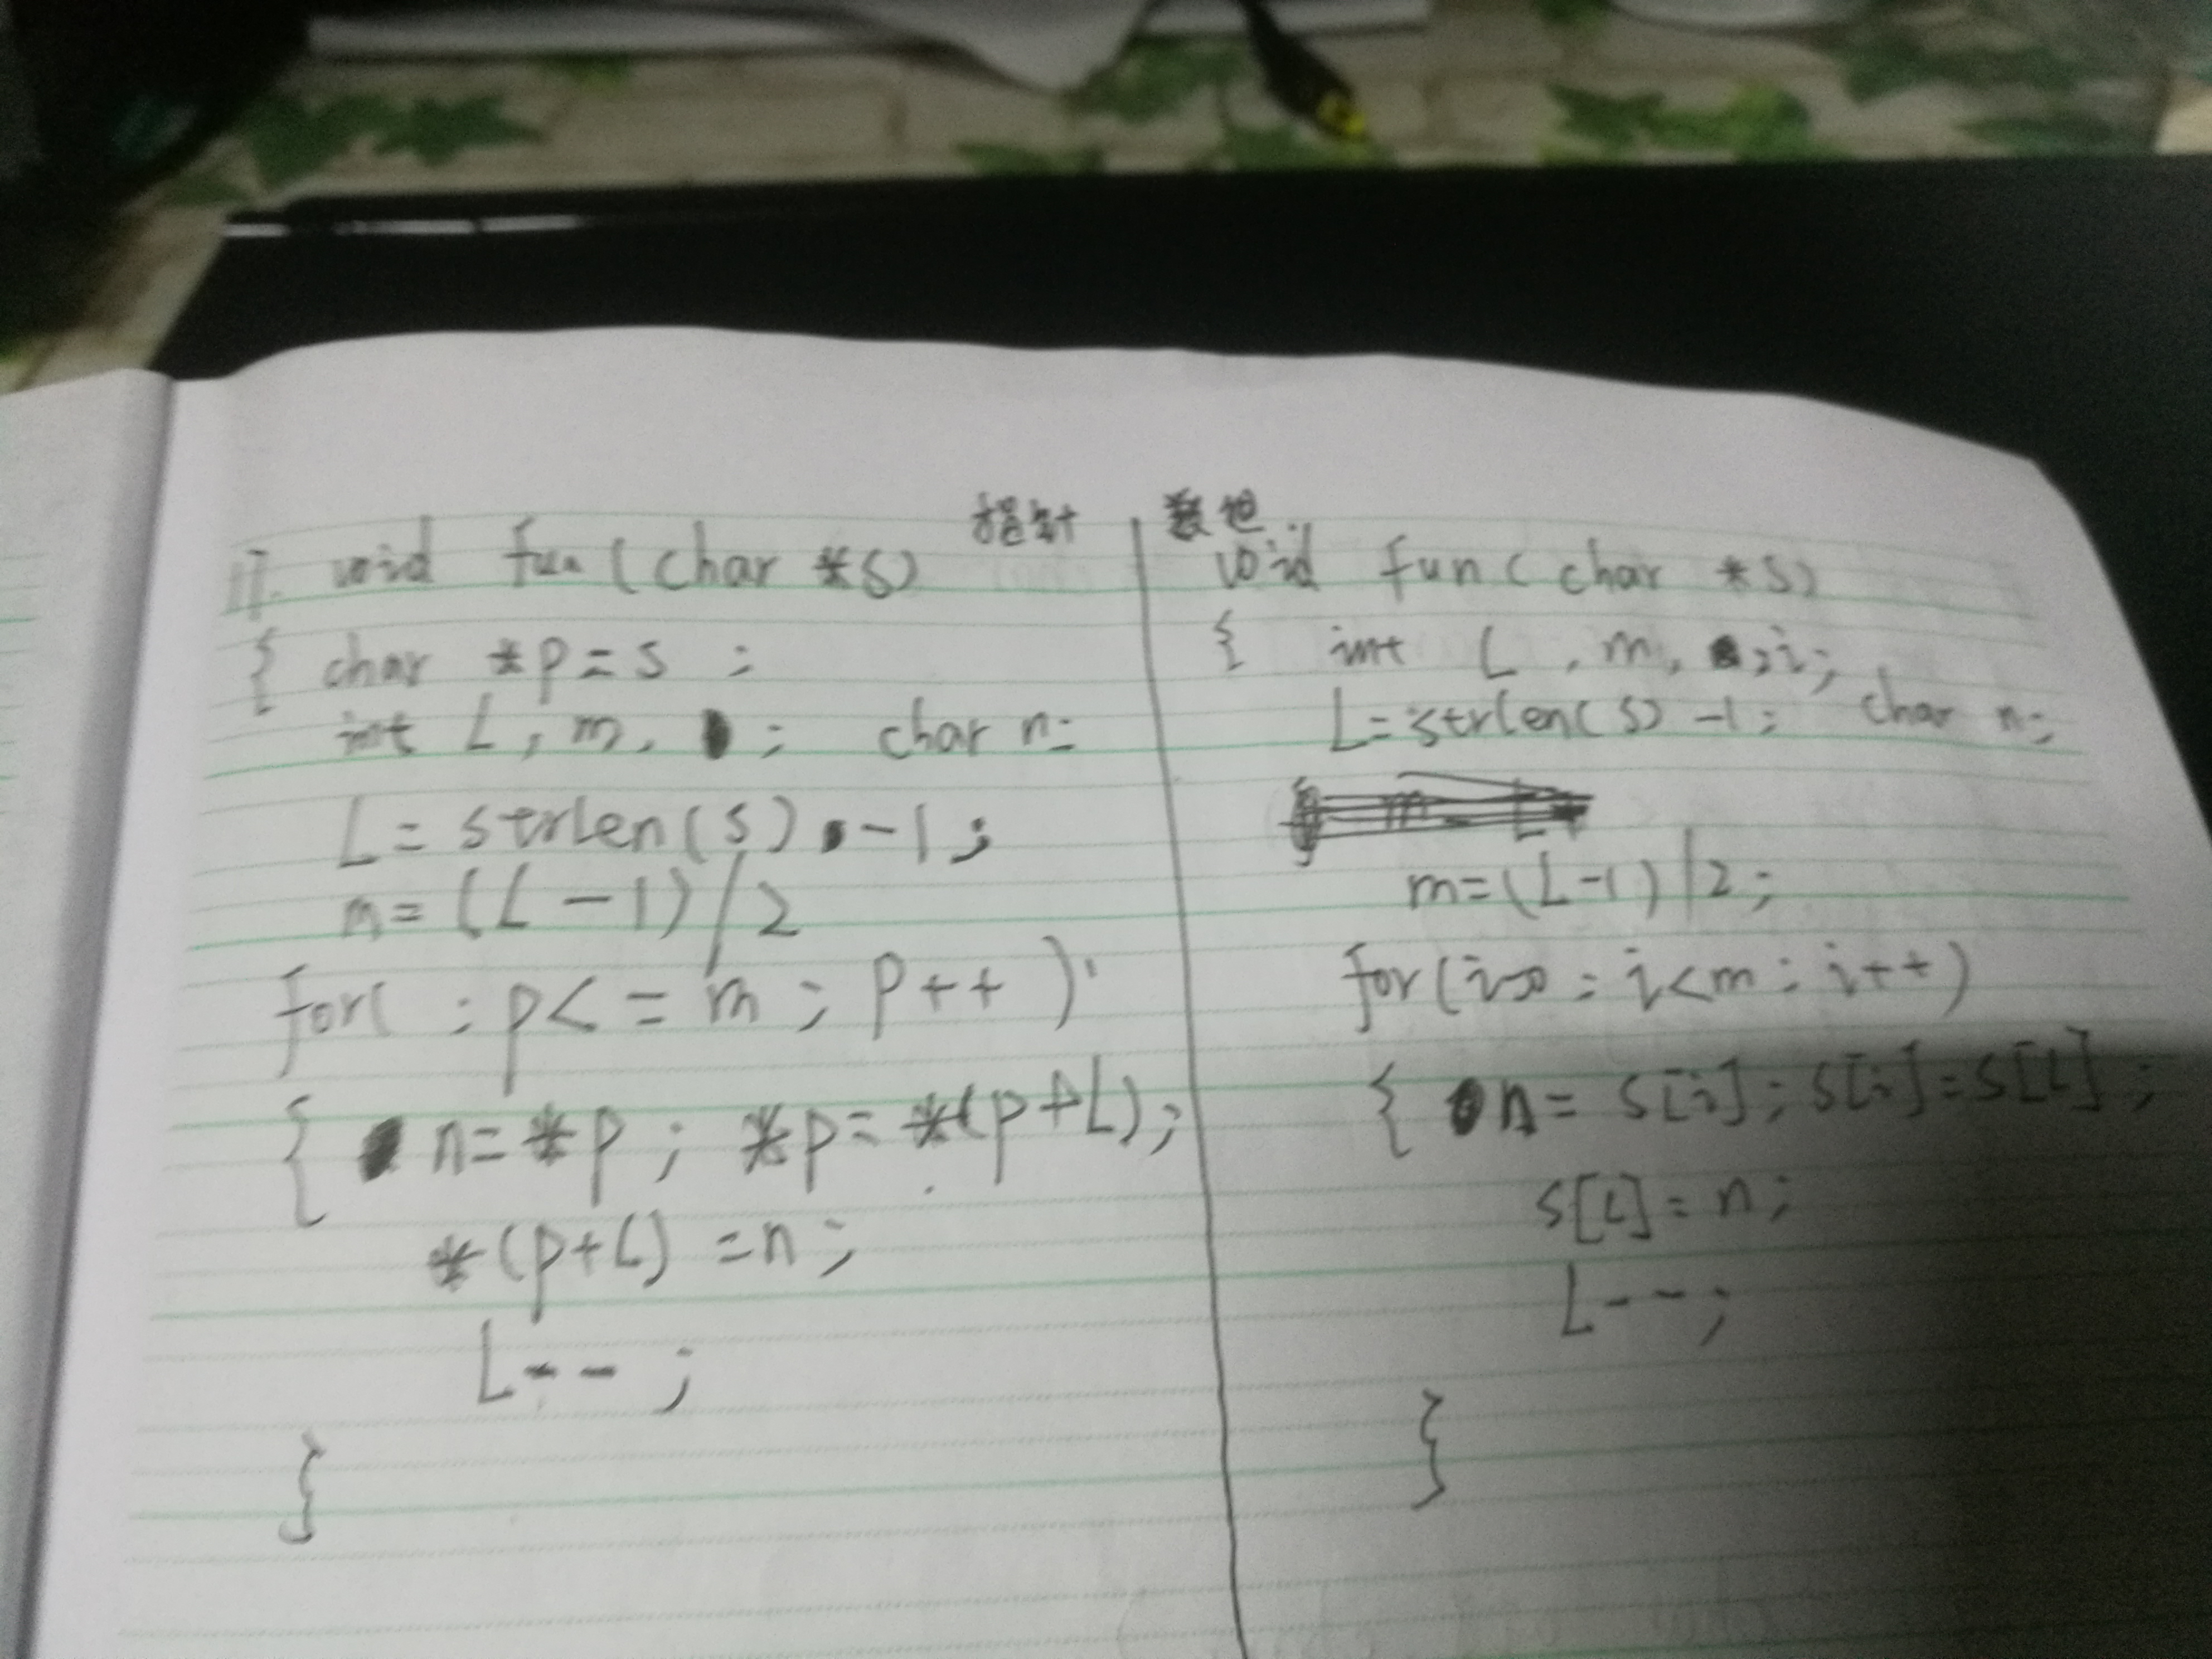 17. void fun (char *s) 指针
{ char *p=s ;
int L, m, ; char n;
L= strlen(s) -1;
m=(L-1)/2
for( ; p<=m ; p++ )
{ n=*p ; *p=*(p+L);
*(p+L) =n;
L--;
}
数组
void fun( char *s)
{ int L, m, ,i;
L=strlen(s)-1; char n;
m=(L-1)/2;
for(i=0; i<m; i++)
{ n= s[i]; s[i]=s[L];
s[L]=n;
L--;
}